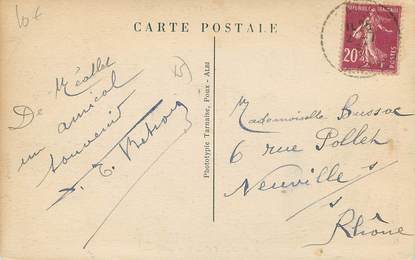 10€
CARTE POSTALE
RÉPUBLIQUE FRANÇAISE
20c
POSTES
De Méallet
un amical
souvenir
Phototypie Tarnaise, Poux - Albi
Mademoiselle
6 rue Pollet
Neuville s/s
Rhône